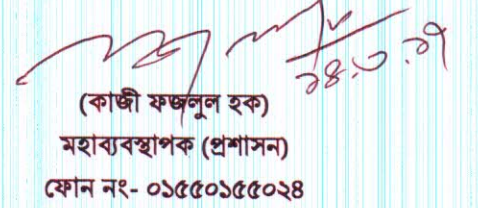 ২৪.৩.২১
(কাজী ফজলুল হক)
মহাব্যবস্থাপক (প্রশাসন)
ফোন নং- ০১৫৫০১৫৫০২৪